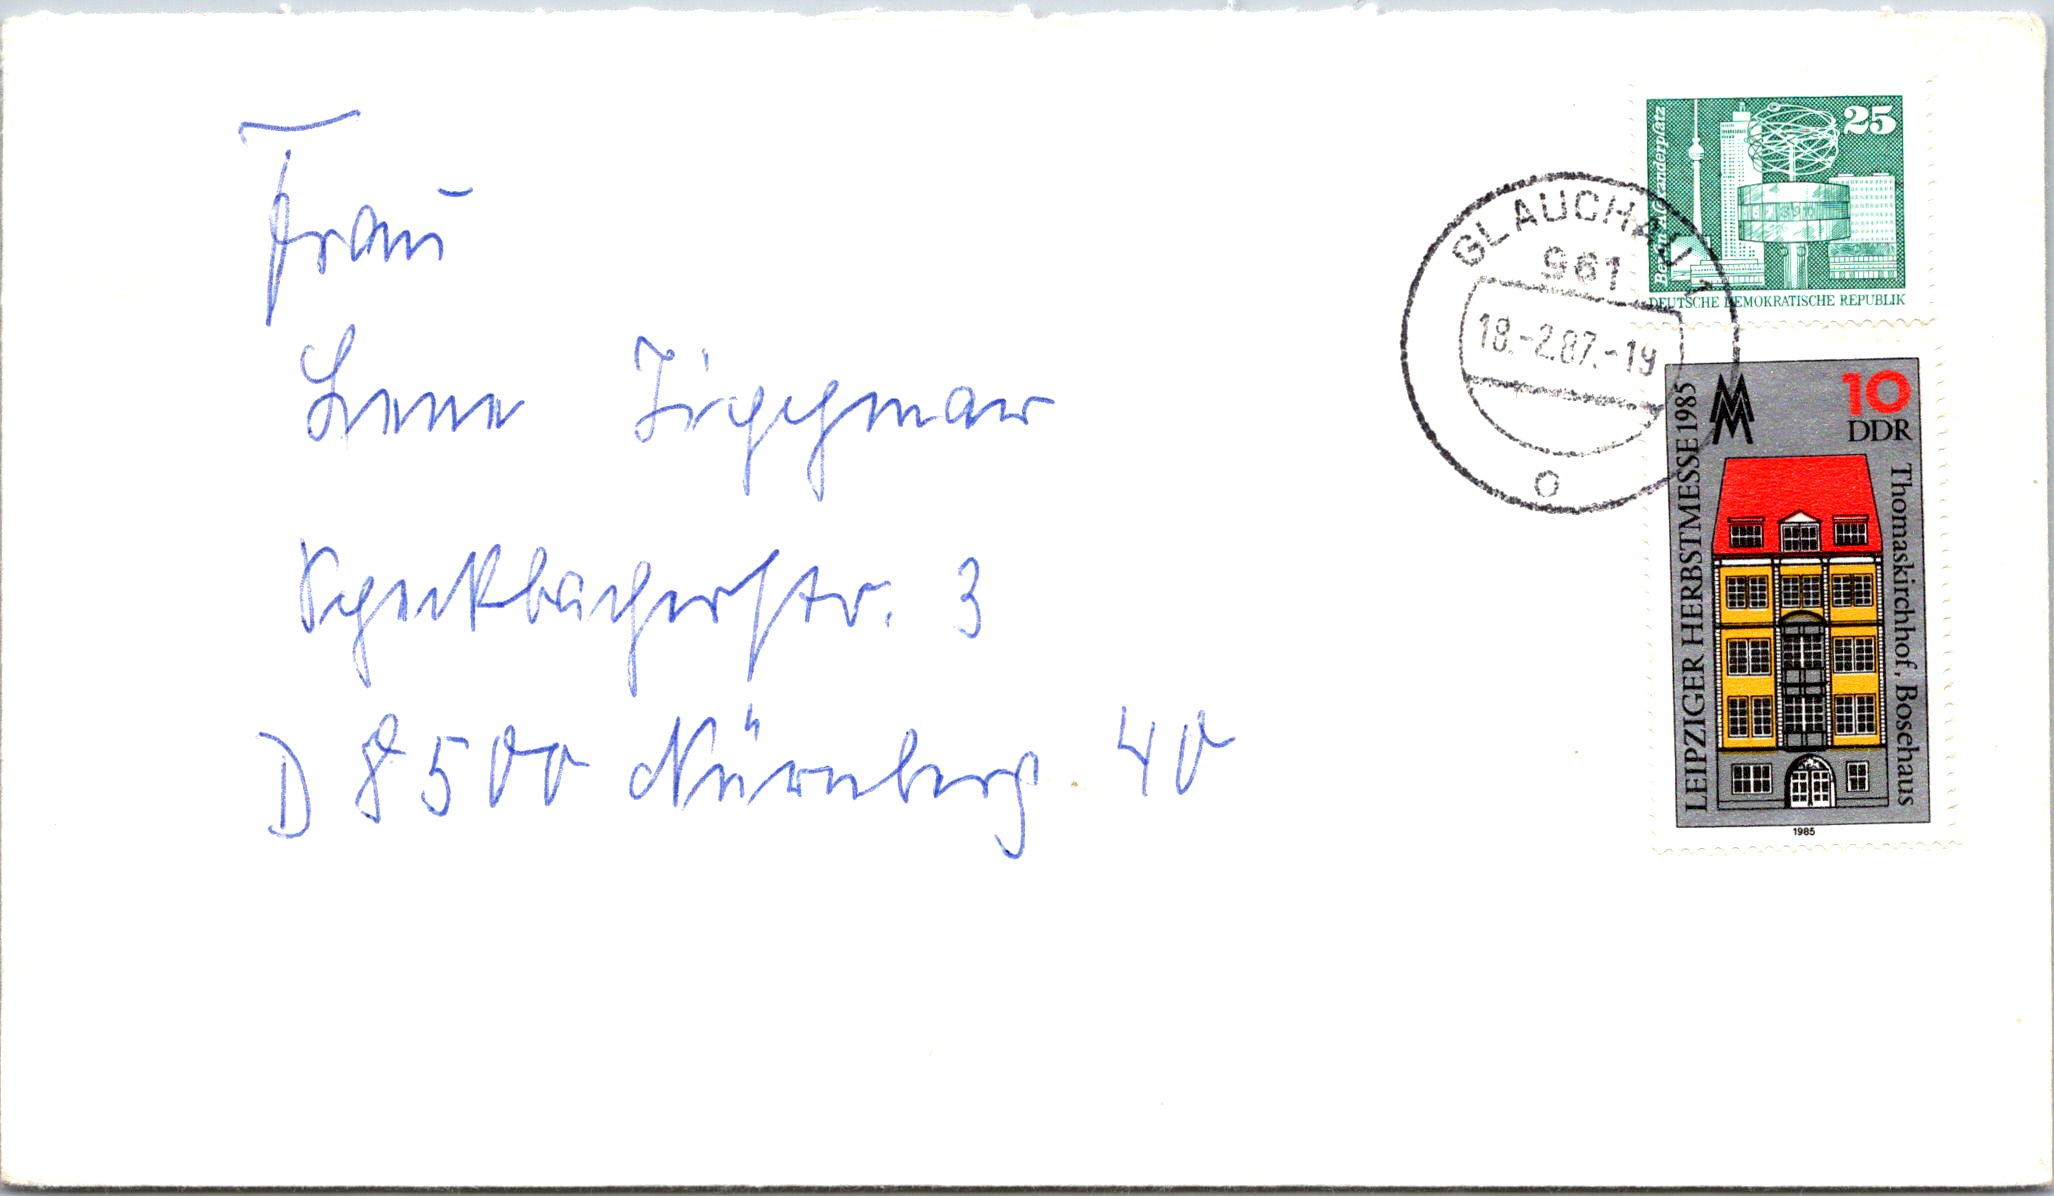 Frau
Lene
3
D 8500 Nürnberg 40
GLAUCHAU 1
961
18.-2.87.-19
o
25
Berlin, Alexanderplatz
DEUTSCHE DEMOKRATISCHE REPUBLIK
10
DDR
LEIPZIGER HERBSTMESSE 1985
Thomaskirchhof, Bosehaus
1985